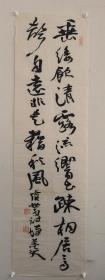 垂緌飲清露流響出疎桐居高
聲自遠非是藉秋風